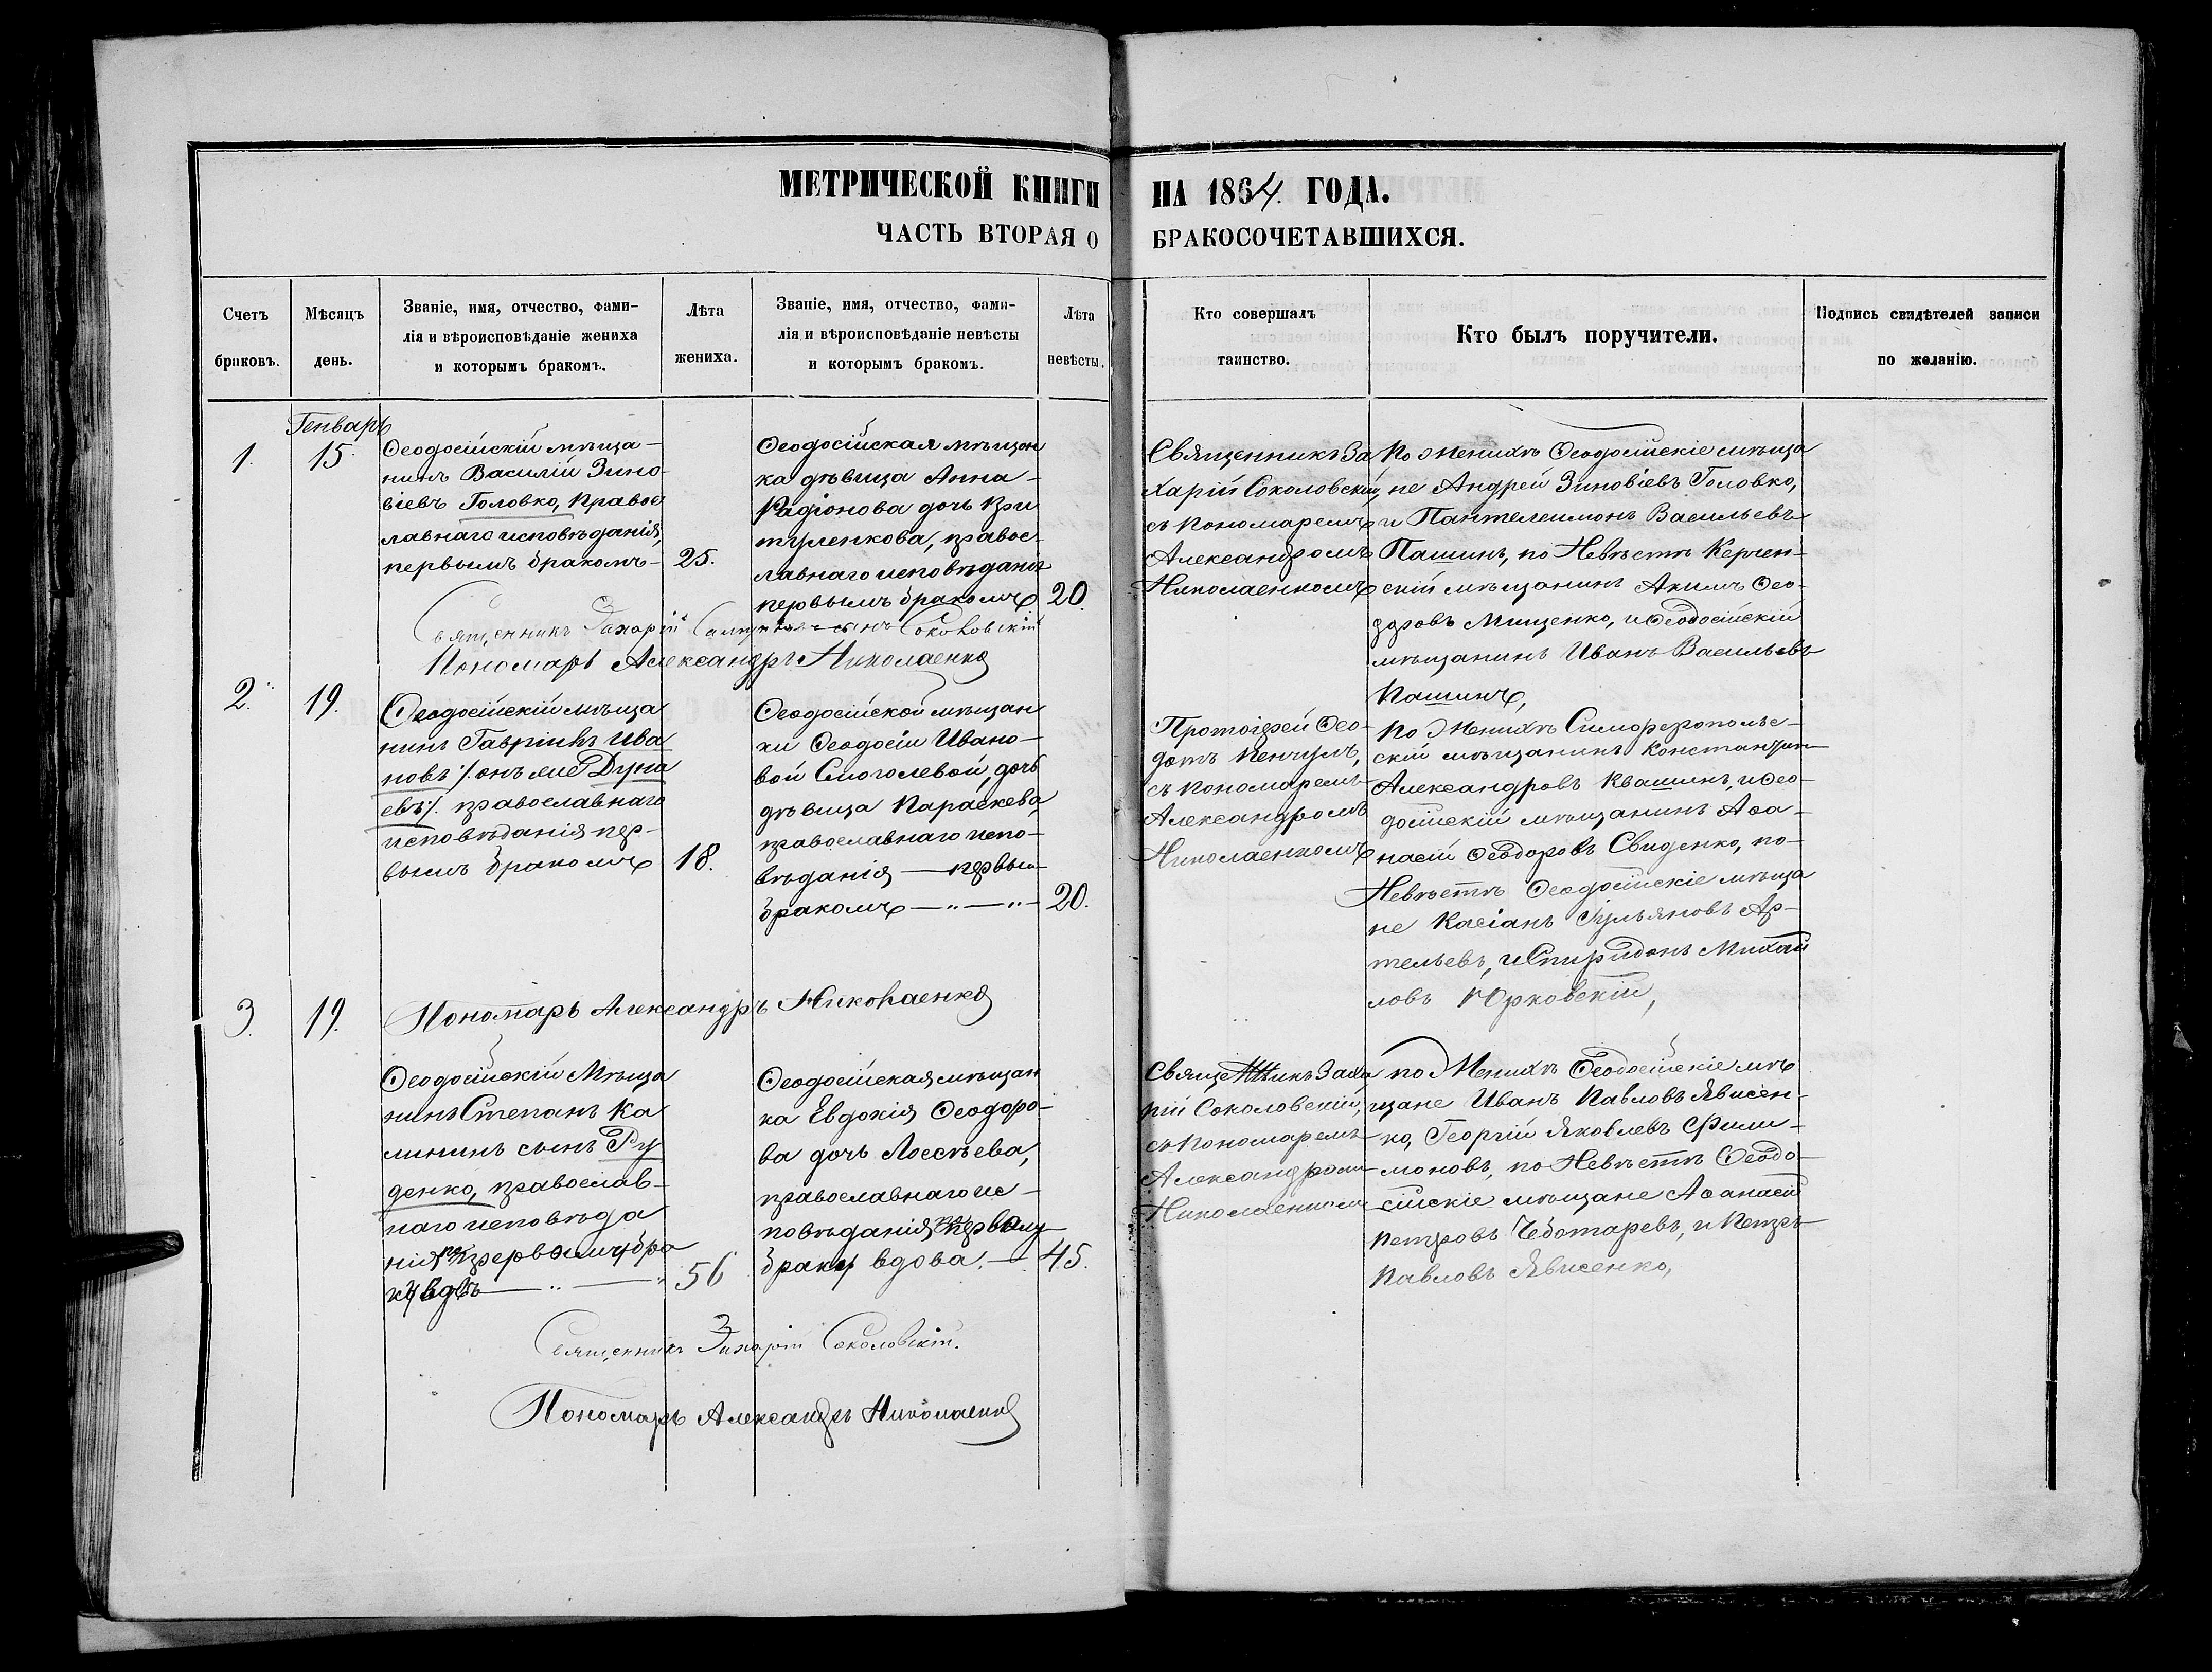 МЕТРИЧЕСКОЙ КНИГИ НА 1864. ГОДА.
ЧАСТЬ ВТОРАЯ О БРАКОСОЧЕТАВШИХСЯ.
Счетъ браковъ.
Мѣсяцъ день.
Званіе, имя, отчество, фами-
лія и вѣроисповѣданіе жениха
и которымъ бракомъ.
Лѣта жениха.
Званіе, имя, отчество, фами-
лія и вѣроисповѣданіе невѣсты
и которымъ бракомъ.
Лѣта невѣсты.
Кто совершалъ
таинство.
Кто былъ поручители.
Подпись свидѣтелей записи
по желанію.
Генварь
1.
15
Ѳеодосійскій мѣща-
нинъ Василій Зино-
віевъ Головко, Правос
лавнаго исповѣданія,
первымъ бракомъ-
25.
Ѳеодосійская мѣщан
ка дѣвица Анна-
Радіонова дочь
правос-
лавнаго исповѣданія
первымъ бракомъ
20.
Священникъ За
харій Соколовскій,
съ Пономаремъ
Александромъ
Николаенкомъ
По Женихѣ Ѳеодосійскіе мѣща
не Андрей Зиновіевъ Головко,
и Пантелеимонъ Васильевъ
Пашинъ, по Невѣстѣ Керчен-
скій мѣщанинъ Акимъ Ѳео-
доровъ Мищенко, и Ѳеодосійскій
мѣщанинъ Иванъ Васильевъ
Пашинъ,
Священникъ Захарій сынъ Соколовскій
Пономарь Александръ Николаенко
2.
19.
Ѳеодосійскій мѣща
нинъ Гавріилъ Ива
новъ /:онъ же Дуна
евъ:/. православнаго
исповѣданія пер-
вымъ бракомъ
18.
Ѳеодосійской мѣщан
ки Ѳеодосіи Ивано-
вой Смоголевой, дочь
дѣвица Параскева,
православнаго испо-
вѣданія — первым
бракомъ — " — " —
20.
Протоіерей Ѳео-
дотъ
съ Пономаремъ
Александромъ
Николаенкомъ
по Женихѣ Симферопольс-
скій мѣщанинъ Константинъ
Александровъ Квашинъ, и Ѳео-
досійскій мѣщанинъ Аѳа-
насій Ѳеодоровъ Свиденко, по-
Невѣстѣ Ѳеодосійскіе мѣща
не Касіанъ Ульяновъ Ар-
тельевъ, и Спиридонъ Михай
ловъ Юрковскій,
3.
19.
Пономарь Александръ Николаенко
Ѳеодосійскій Мѣща
нинъ Степанъ Ка
лининъ сынъ Ру
денко, православ-
наго исповѣда
нія по первому бра
ку вд — " — "
56
Ѳеодосійская мѣщан
ка Евдокія Ѳеодоро-
ва дочь
православнаго ис-
повѣданія по первому
браку вдова. —
45.
Священникъ Заха
рій Соколовскій,
съ Пономаремъ
Александром
Николаенком
по Женихѣ Ѳеодосійскіе мѣ
щане Иванъ Павловъ Явисен-
ко, Георгій Яковлевъ Фили-
моновъ, по Невѣстѣ Ѳеодо
сійскіе мѣщане Аѳанасій
Петровъ Чеботаревъ, и Петръ
Павловъ Явисенко,
Священникъ Захарій Соколовскій.
Пономарь Александръ Николаенко